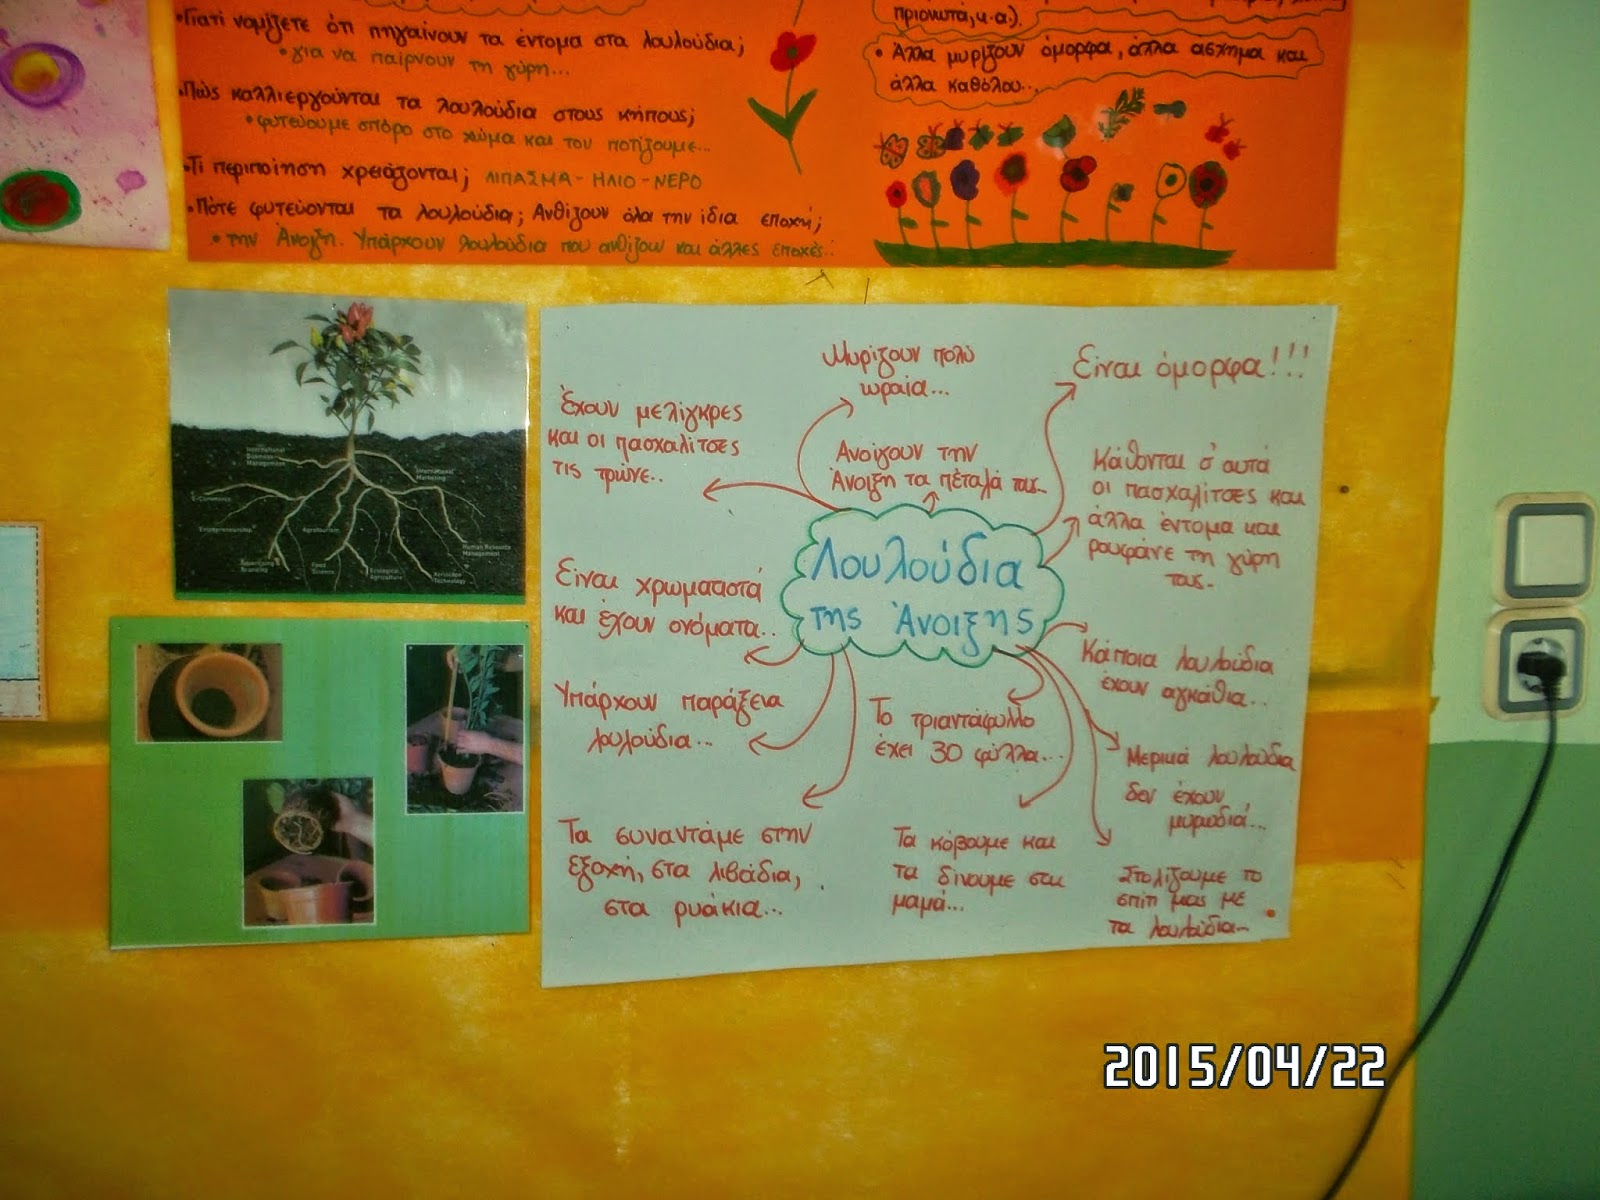 •Γιατί νομίζετε ότι πηγαίνουν τα έντομα στα λουλούδια;
•για να παίρνουν τη γύρη...
•Πώς καλλιεργούνται τα λουλούδια στους κήπους;
•φυτεύουμε σπόρο στο χώμα και τον ποτίζουμε...
•Τι περιποίηση χρειάζονται; ΛΙΠΑΣΜΑ-ΗΛΙΟ-ΝΕΡΟ
•Πότε φυτεύονται τα λουλούδια; Ανθίζουν όλα την ίδια εποχή;
•την Άνοιξη. Υπάρχουν λουλούδια που ανθίζουν και άλλες εποχές..
πριονωτά,κ.α.).
•Άλλα μυρίζουν όμορφα, άλλα άσχημα και
άλλα καθόλου...
International
Business
Management
International
Marketing
E-Commerce
Entrepreneurship
Agrotourism
Human Resource
Management
Food
Science
Ecological
Agriculture
Technology
Μυρίζουν πολύ
ωραία...
Είναι όμορφα!!!
Έχουν μελίγκρες
και οι πασχαλίτσες
τις τρώνε..
Ανοίγουν την
Άνοιξη τα πέταλά τους..
Κάθονται σ' αυτά
οι πασχαλίτσες και
άλλα έντομα και
ρουφάνε τη γύρη
τους..
Λουλούδια
της Άνοιξης
Είναι χρωματιστά
και έχουν ονόματα..
Κάποια λουλούδια
έχουν αγκάθια..
Υπάρχουν παράξενα
λουλούδια...
Το τριαντάφυλλο
έχει 30 φύλλα...
Μερικά λουλούδια
δεν έχουν
μυρωδιά...
Τα συναντάμε στην
εξοχή, στα λιβάδια,
στα ρυάκια...
Τα κόβουμε και
τα δίνουμε στη
μαμά...
Στολίζουμε το
σπίτι μας με
τα λουλούδια..
2015/04/22